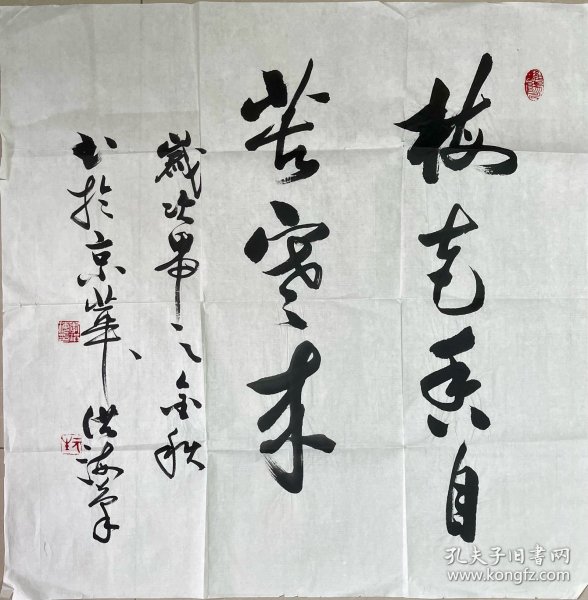 梅花香自
苦寒来
歲次甲申之金秋
书於京華 洪海
孔夫子旧书网
www.kongfz.com